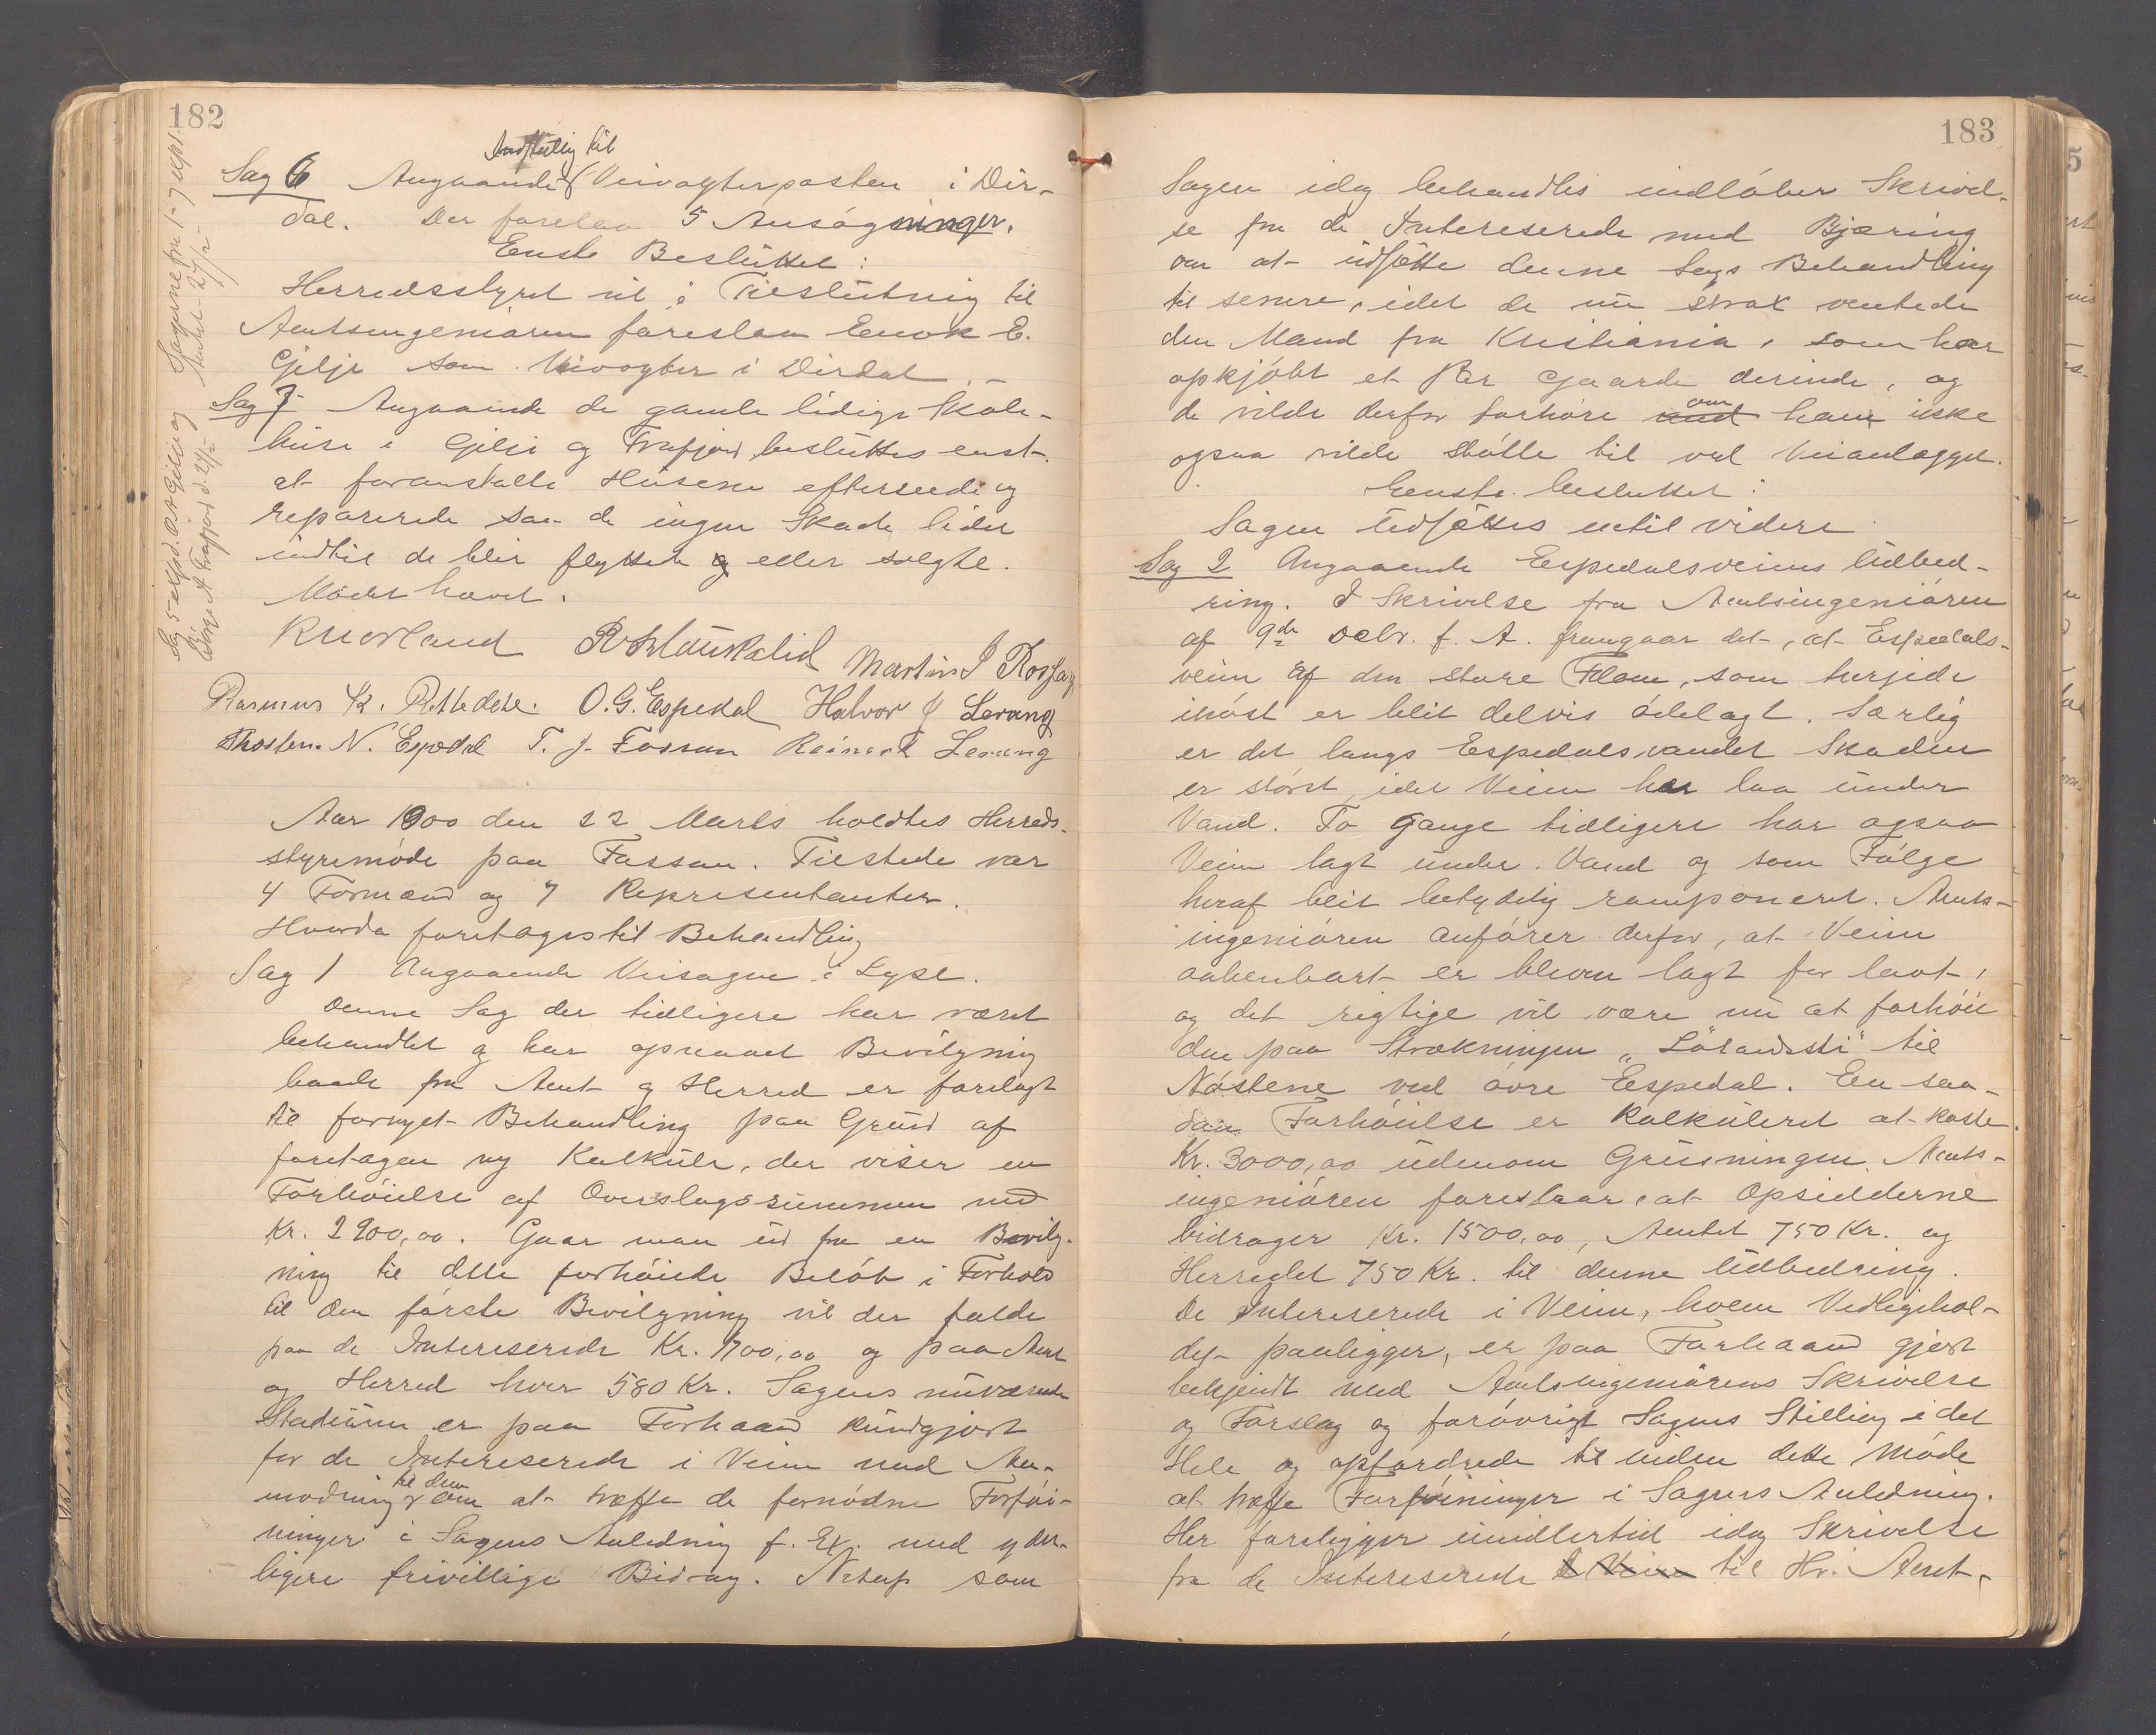 182
Indstilling til
Sag 6 Angaaende Veivogterposten i Dir-
dal. Der forelaa 5 Ansøgninger.
Enste Besluttet:
Herredsstyret vil i Tilslutning til
Amtsingeniøren foreslaa Enok E.
Gjilje som Veivogter i Dirdal. –
Sag 7 Angaaende de gamle ledige Skole-
huse i Gilje og Frafjord besluttes enst.
at foranstalte Husene efterseede og
reparerede saa de ingen Skade lider
indtil de blir flyttede eller solgte.
Mødet hævet.
Martin I
Rasmus K. O.G. Espedal Halvor J Levang
N. Espedal T. J. Fossan Reinert Levang
Aar 1900 den 22 Marts holdtes Herreds-
styremøde paa Fossan. Tilstede var
4 Formænd og 7 Representanter.
Hvorda foretages til Behandling
Sag 1 Angaaende Veisagen i Lyse.
Denne Sag der tidligere har været
behandlet og har opnaaet Bevilgning
baade fra Amt og Herred er forelagt
til fornyet Behandling paa Grund af
foretagen ny Kalkule, der viser en
Forhøielse af Overslagssummen med
Kr. 2900,00. Gaar man ud fra en Bevilg-
ning til dette forhøiede Beløb i Forhold
til den første Bevilgning vil der falde
paa de Intereserede Kr. 1700,00 og paa Amt
og Herred hver 580 Kr. Sagens nuværende
Stadium er paa Forhaand kundgjort
for de Intereserede i Veien med An-
til dem
modning om at træffe de fornødne Forføi-
ninger i Sagens Anledning f. Ex. med yder-
ligere frivillige Bidrag. Netop som
183
Sagen idag behandles indløber Skrivel-
se fra de Intereserede med Bjæring
om at udsætte denne Sags Behandling
til senere, idet de nu strax ventede
den Mand fra Kristiania, som har
opkjøbt et Par Gaarde derinde, og
om
de vilde derfor forhøre med ham ikke
ogsaa vilde støtte til ved Veianlægget.
Enste. besluttet:
Sagen udsættes indtil videre
Sag 2 Angaaende Espedalsveiens Udbed-
ring. I Skrivelse fra Amtsingeniøren
af 9de Debr. f. A. fremgaar det, at Espedals-
veien af den store Flom, som herjede
ihøst er blit delvis ødelagt. Særlig
er det langs Espedalsvandet Skaden
er størst, idet Veien har laa under
Vand. To Gange tidligere har ogsaa
Veien lagt under Vand og som Følge
heraf blit betydelig ramponeret. Amts-
ingeniøren anfører derfor, at Veien
aabenbart er bleven lagt for lavt,
og det rigtige vil være nu at forhøie
den paa Strækningen til
Nøstene ved øvre Espedal. En saa-
dan Forhøielse er kalkuleret at koste
Kr. 3000,00 udenom Grusningen. Amts-
ingeniøren foreslaar, at Opsidderne
bidrager Kr. 1500,00, Amtet 750 Kr. og
Herredet 750 Kr. til denne Udbedring.
De Intereserede i Veien, hvem Vedligehol-
det paaligger, er paa Forhaand gjort
bekjendt med Amtsingeniørens Skrivelse
og Forslag og forøvrigt Sagens Stilling i det
Hele og opfordrede til inden dette Møde
at træffe Forføininger i Sagens Anledning.
Her foreligger imidlertid idag Skrivelse
fra de Intereserede i Veien til Hr. Amt-